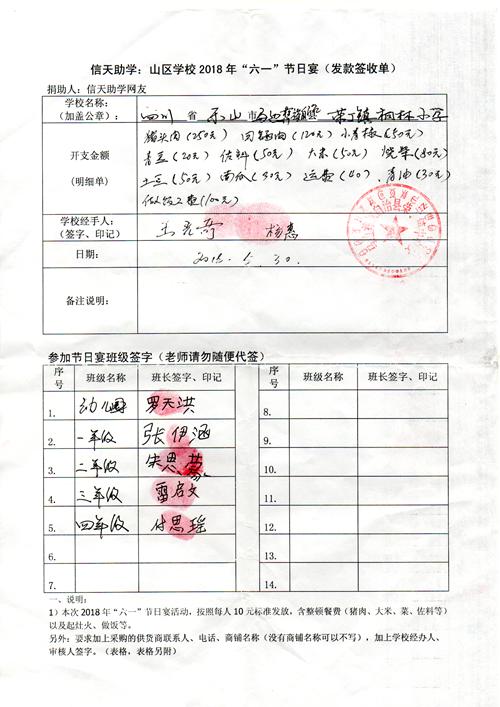 信天助学：山区学校2018年“六一”节日宴（发款签收单）
捐助人：信天助学网友
学校名称：
（加盖公章）：
四川 省 乐山 市 马边彝族自治县 荣丁镇 桐林小学
开支金额
（明细单）
猪头肉（250元） 回锅肉（120元） 小青椒（50元）
青豆（20元） 佐料（50元） 大米（50元） 烧柴（80元）
土豆（50元） 南瓜（40元） 运费（40）、青油（30元）
做饭工资（100元）
学校经手人：
（签字、印记）
杨惠
日期：
2018. 5. 30.
备注说明：
参加节日宴班级签字（老师请勿随便代签）
序号 班级名称 班长签字、印记 序号 班级名称 班长签字、印记
1. 幼儿园 罗天洪 8.
2. 一年级 张伊涵 9.
3. 二年级 宋思 10.
4. 三年级 雷启文 11.
5. 四年级 付思瑶 12.
6. 13.
7. 14.
一、说明：
1）本次2018年“六一”节日宴活动，按照每人10元标准发放，含整顿餐费（猪肉、大米、菜、佐料等）
以及起灶火、做饭等。
另外：要求加上采购的供货商联系人、电话、商铺名称（没有商铺名称可以不写），加上学校经办人、
审核人签字。（表格，表格另附）